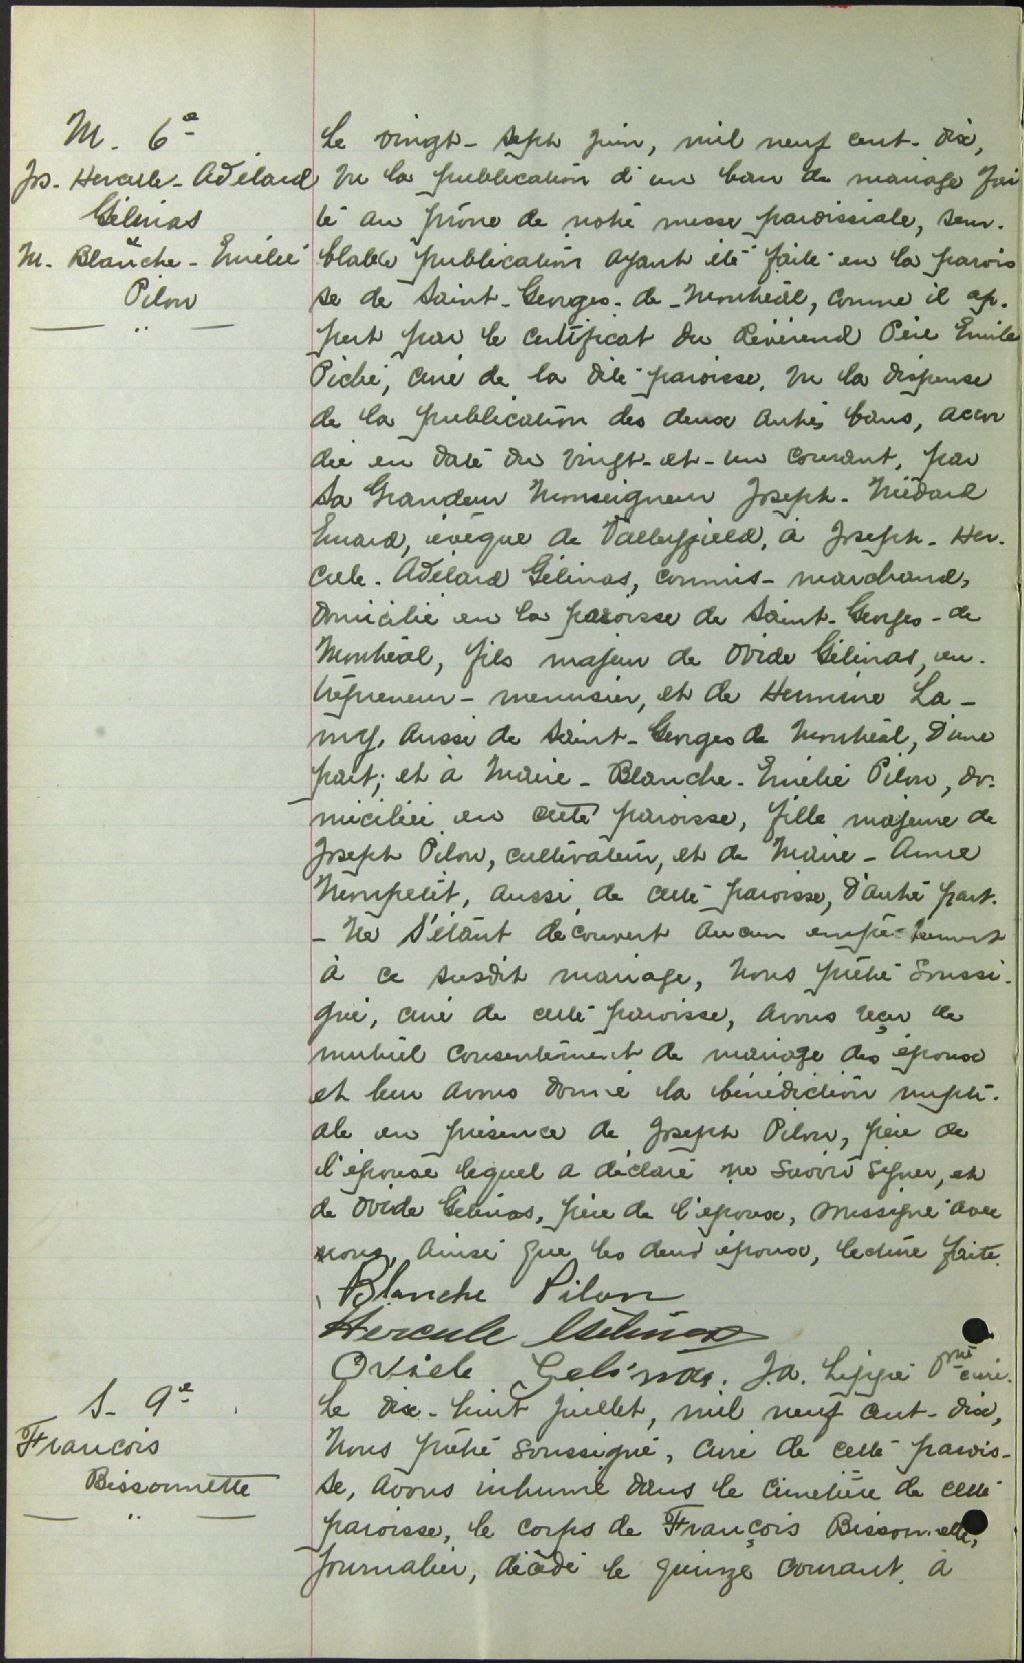 M. 6e
Jos. Hercule-Adélard
Gélinas
&
M. Blanche-Emélie
Pilon
Le vingt-sept juin, mil neuf cent-dix,
vu la publication d'un ban de mariage fai
te au prône de notre messe paroissiale, sem-
blable publication ayant été faite en la parois
se de Saint-Georges-de-Montréal, comme il ap-
pert par le certificat du Révérend Père Emile
Piché, curé de la dite paroisse, vu la dispense
de la publication des deux autres bans, accor
dée en date du vingt-et-un courant, par
Sa Grandeur Monseigneur Joseph-Médard
Emard, évêque de Valleyfield, à Joseph-Her-
cule-Adélard Gélinas, commis-marchand,
domicilié en la paroisse de Saint-Georges-de
Montréal, fils majeur de Ovide Gélinas, en-
trepreneur-menuisier, et de Hermine La-
my, aussi de Saint-Georges de Montréal, d'une
part; et à Marie-Blanche-Emélie Pilon, do-
miciliée en cette paroisse, fille majeure de
Joseph Pilon, cultivateur, et de Marie-Anne
Monpetit, aussi de cette paroisse, d'autre part.
- Ne s'étant découvert aucun empêchement
à ce susdit mariage, Nous prêtre soussi-
gné, curé de cette paroisse, avons reçu le
mutuel consentement de mariage des époux
et leur avons donné la bénédiction nupti-
ale en présence de Joseph Pilon, père de
l'épouse lequel a déclaré ne savoir signer, et
de Ovide Gélinas, père de l'époux, soussigné avec
nous, ainsi que les deux époux, lecture faite.
Blanche Pilon
Hercule Gélinas
Ovide Gelinas. J.A. Lippé Ptre curé.
S. 9e
François
Bissonnette
Le dix-huit juillet, mil neuf cent-dix,
Nous prêtre soussigné, curé de cette parois-
se, avons inhumé dans le cimetière de cette
paroisse, le corps de François Bissonnette,
journalier, décédé le quinze courant, à